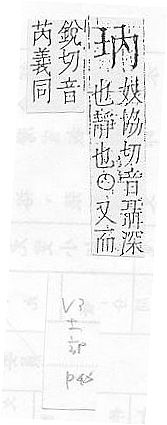 妓協切音聶深
也靜也〇又而
銳切音
芮義同
V3
土部